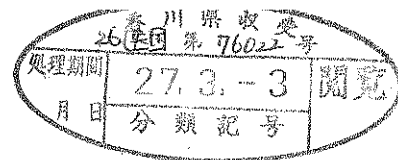 香川県収受
26医国第76022号
処理期間
27.3.-3
閲覧
月日
分類記号